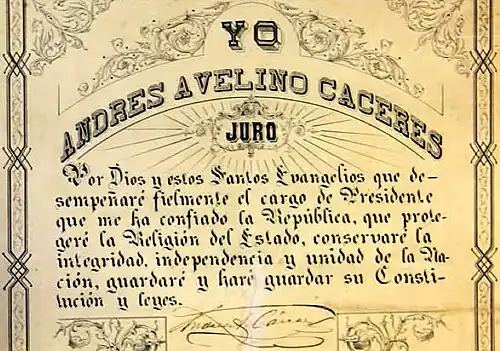 YO
ANDRES AVELINO CACERES
JURO
Por Dios y estos Santos Evangelios que de-
sempeñaré fielmente el cargo de Presidente
que me ha confiado la República, que prote-
geré la Religión del Estado, conservaré la
integridad, independencia y unidad de la Na-
ción, guardaré y haré guardar su Consti-
tución y leyes.